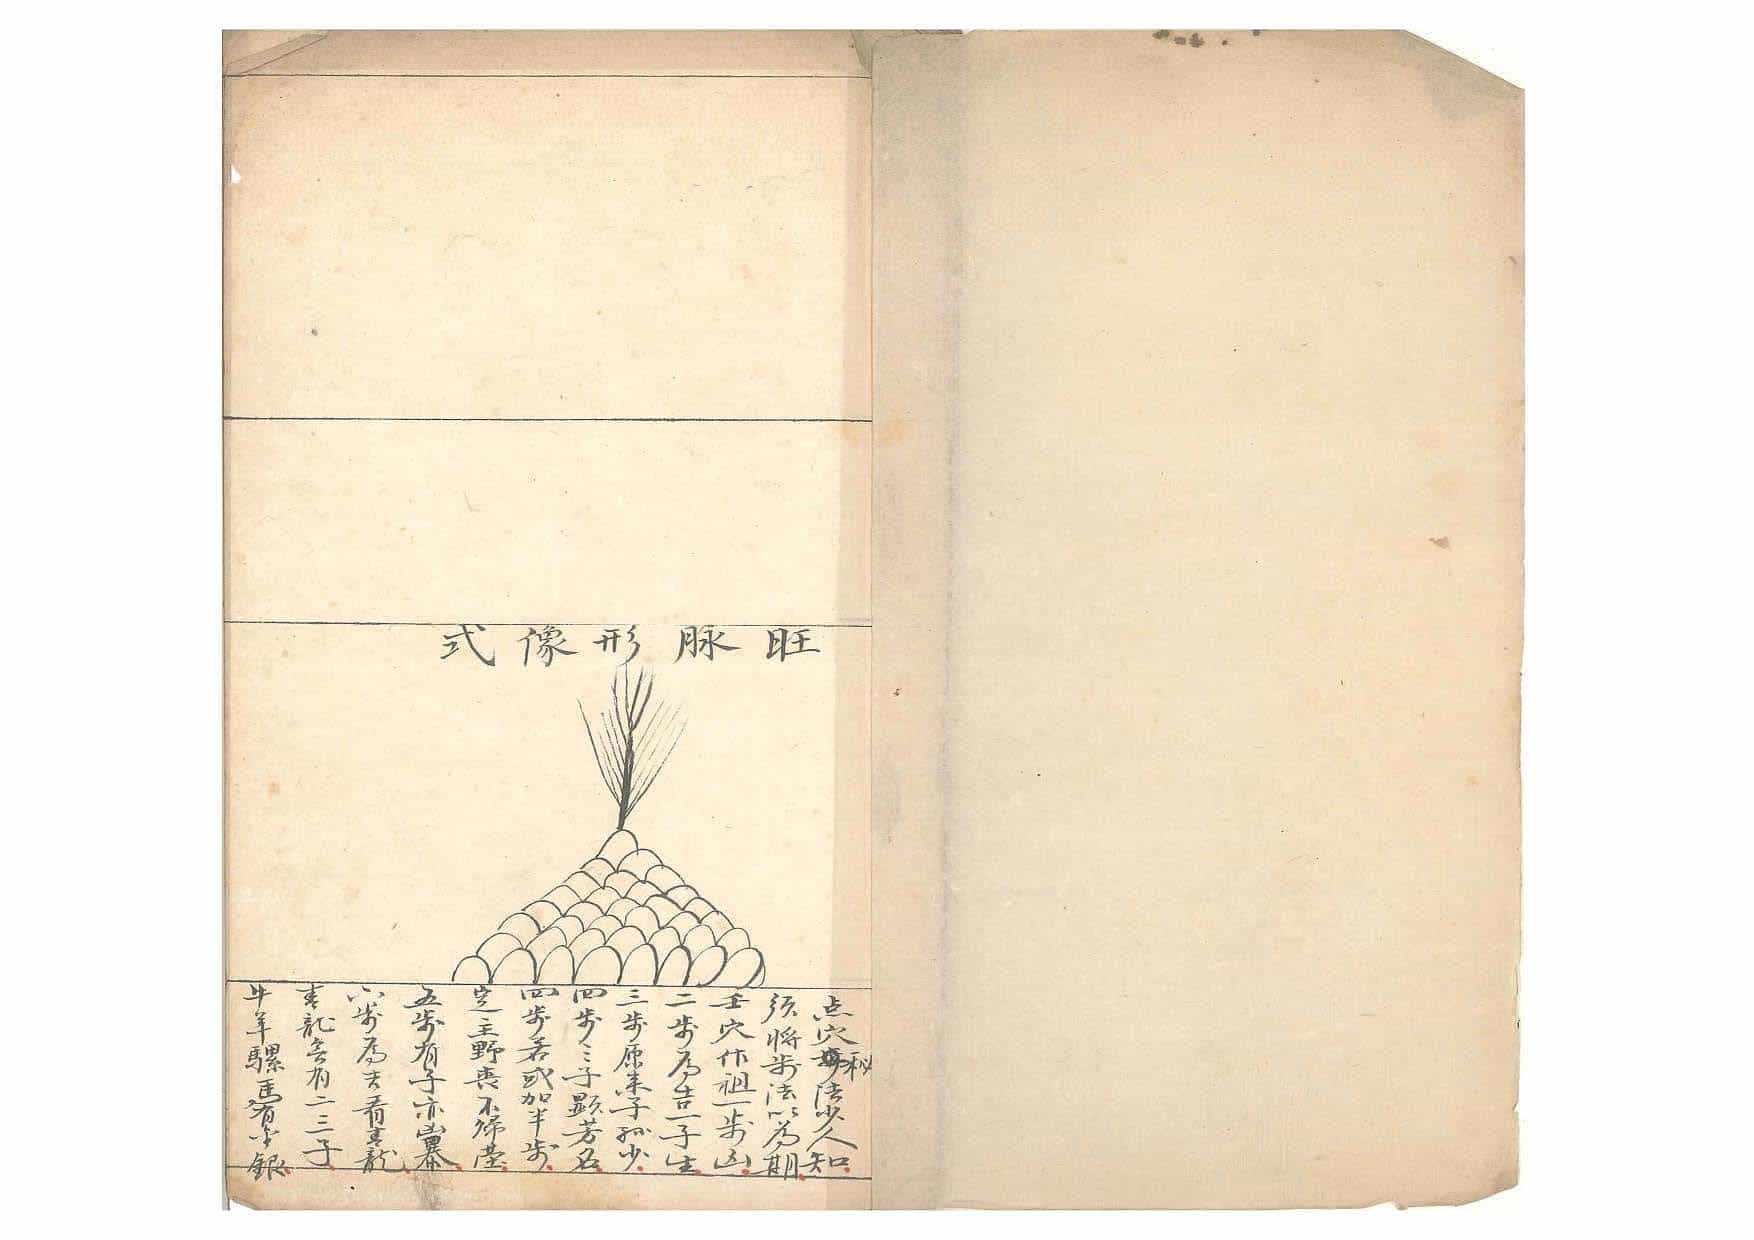 旺脉形像式
点穴秘法少人知
须将步法以為期
壬穴作祖一步凶
二步為吉一子生
三步原来子孙少
四步三子顕芳名
四步若或加半步
定主野喪不归塋
五步有子亦凶暴
六步為吉看青龍
青龍亦有二三子
牛羊騾馬有金銀